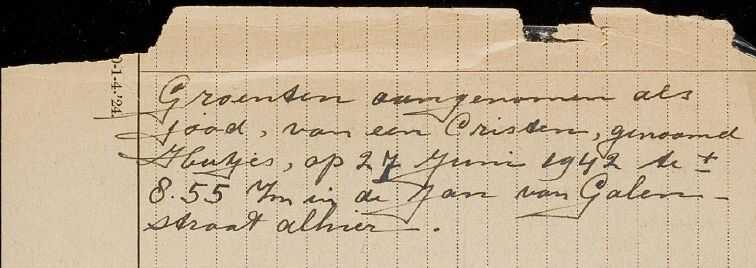 0-1-4.'24.
Groenten aangenomen als
Jood, van een Cristen, genaamd
Hutjes, op 27 Juni 1942 te ±
8.55 Vm in de Jan van Galen-
straat alhier.